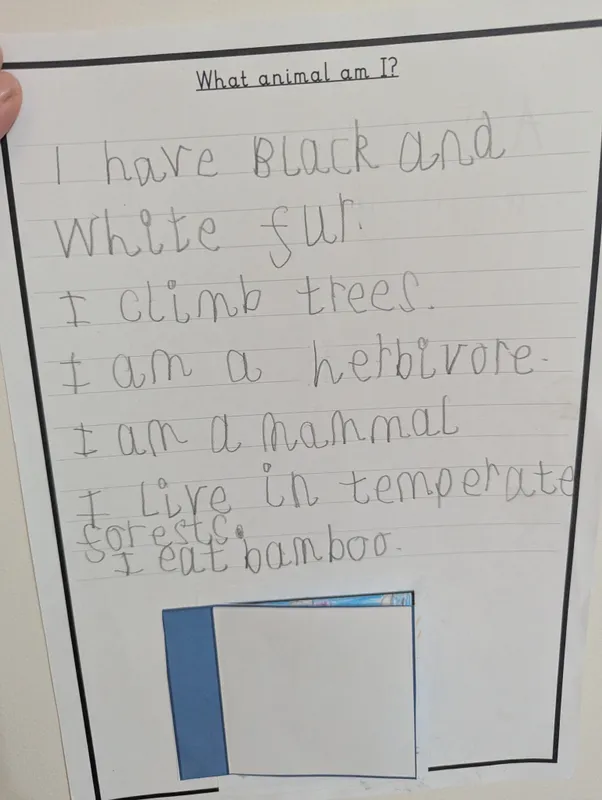 What animal am I?
I have Black and
White fur.
I climb trees.
I am a herbivore.
I am a mammal
I Live in temperate
forests.
I eat bamboo.